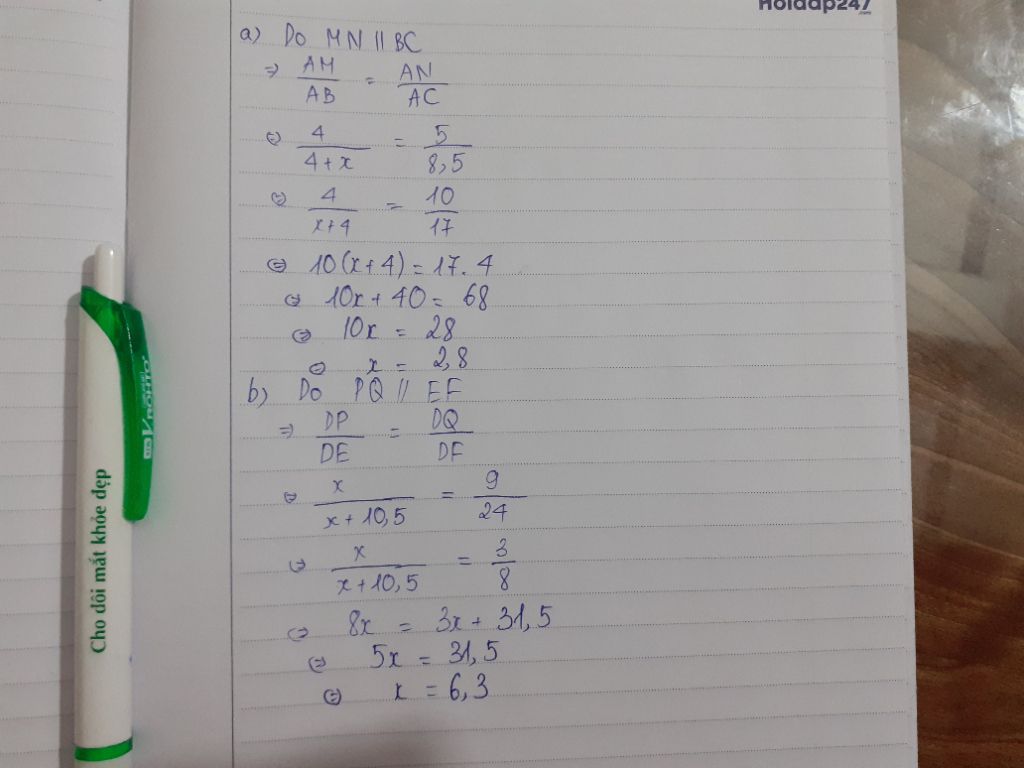 Hoidap247
.com
a) Do MN // BC
⇒ AM/AB = AN/AC
⇔ 4/(4+x) = 5/8,5
⇔ 4/(x+4) = 10/17
⇔ 10(x+4) = 17.4
⇔ 10x + 40 = 68
⇔ 10x = 28
⇔ x = 2,8
b) Do PQ // EF
⇒ DP/DE = DQ/DF
⇔ x/(x+10,5) = 9/24
⇔ x/(x+10,5) = 3/8
⇔ 8x = 3x + 31,5
⇔ 5x = 31,5
⇔ x = 6,3
V.ROHTO
Cho đôi mắt khỏe đẹp